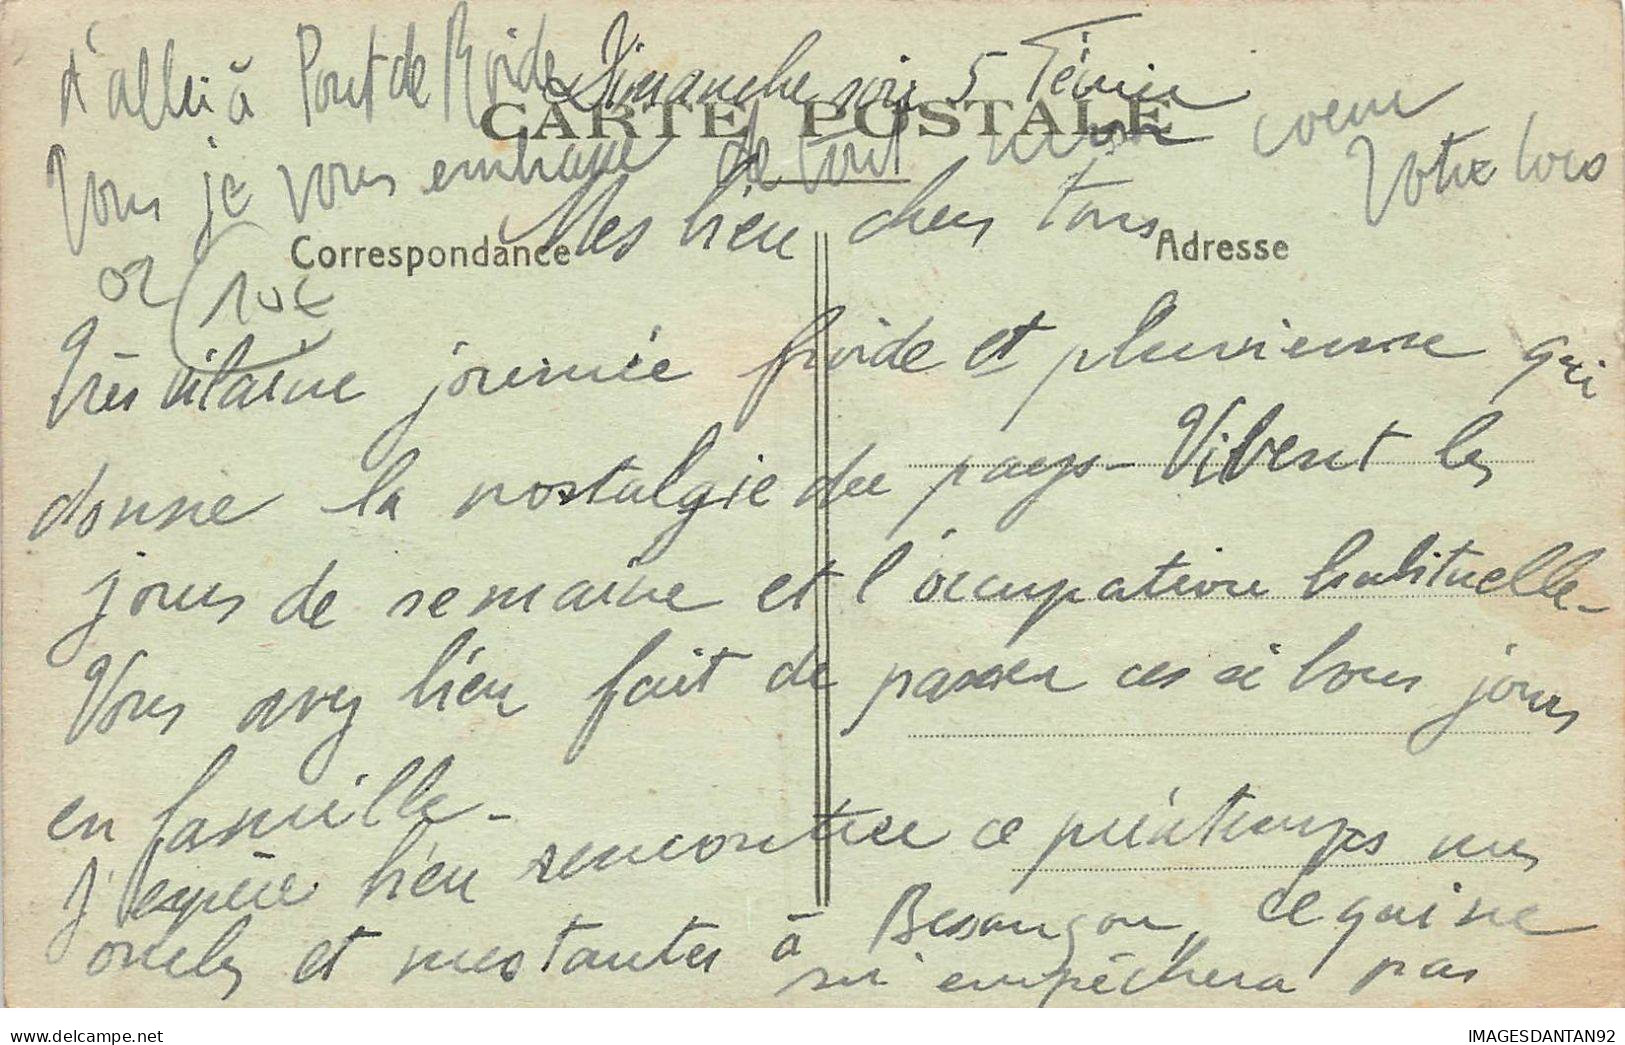 d'aller à Pont de Roide
Dimanche soir 5 Février
CARTE POSTALE
Vous je vous embrasse de tout mon coeur
Votre
Mes bien chers tous
Correspondance
Adresse
02 (10€
Très vilaine journée froide et pluvieuse qui
donne la nostalgie du pays - Vivent les
jours de semaine et l'occupation habituelle -
Vous avez bien fait de passer ces si bons jours
en famille -
J'espère bien rencontrer ce printemps mes
oncles et mes tantes à Besançon, ce qui ne
m'empêchera pas
delcampe.net
IMAGESDANTAN92